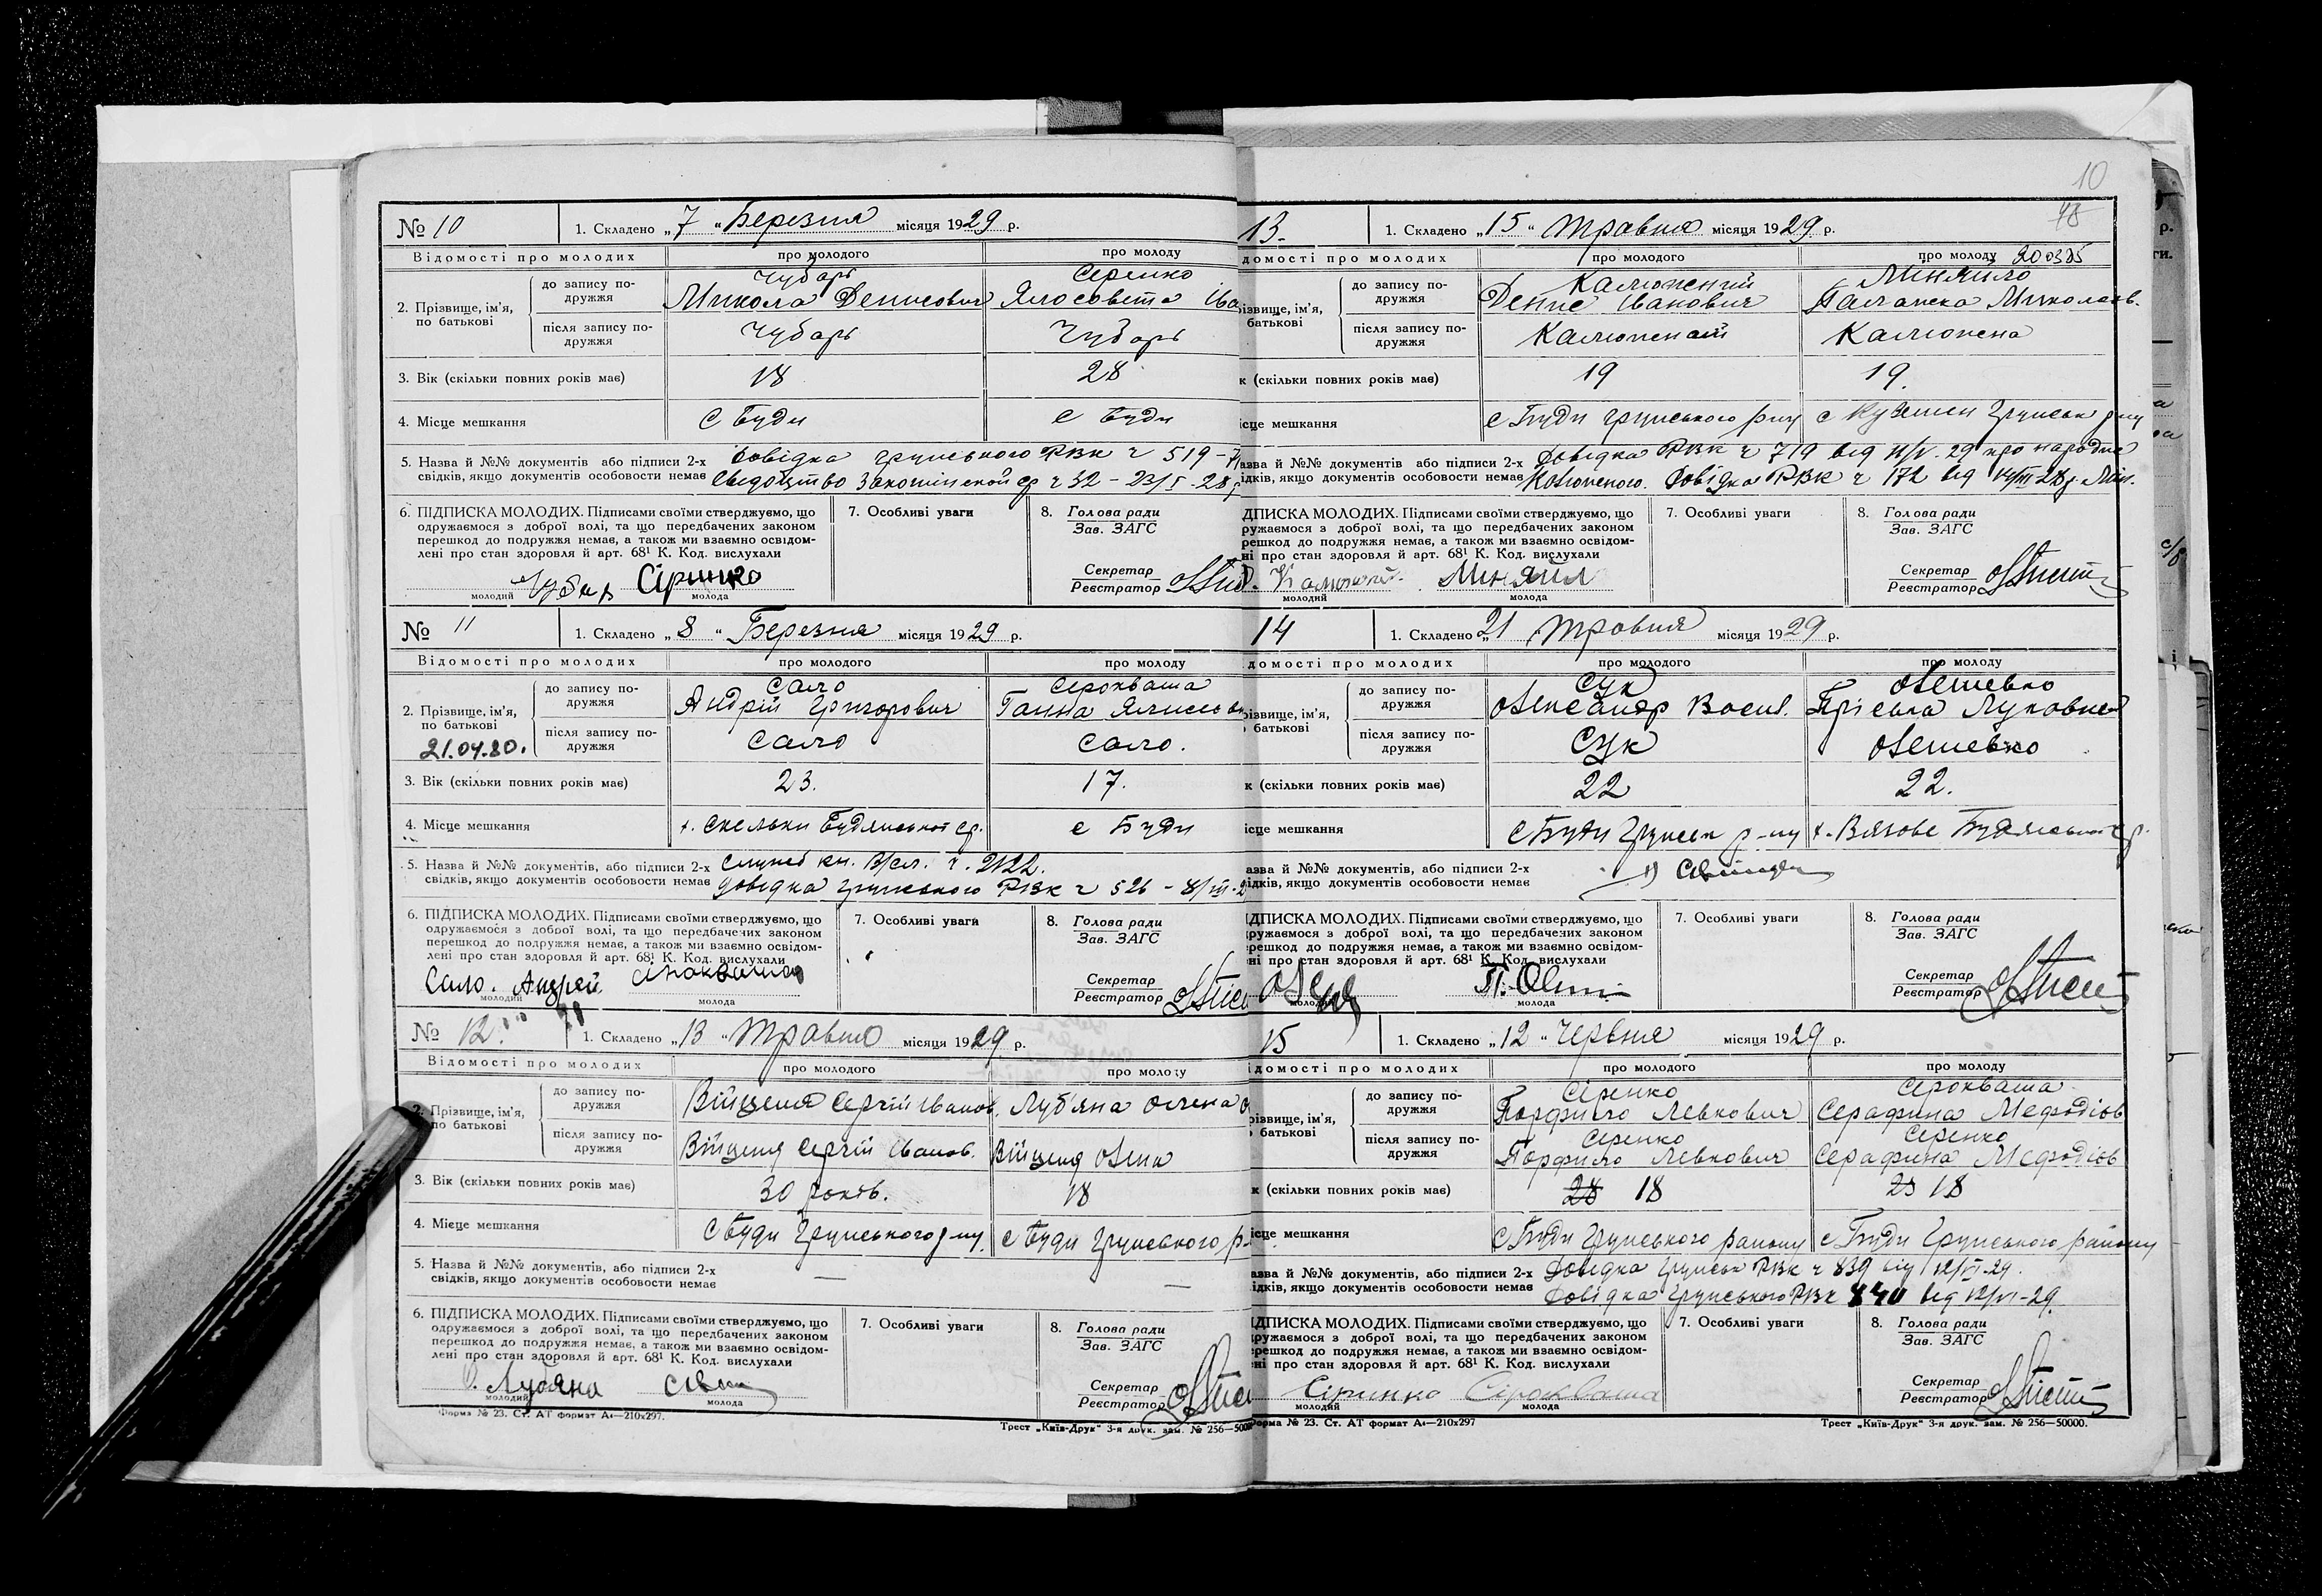 № 10
1. Складено „7 “ Березня місяця 1929 р.
Відомості про молодих
про молодого
про молоду
2. Прізвище, ім’я, по батькові
до запису подружжя
Чубарь
Микола Денисович
Серенко
Ялосовета Іва
після запису подружжя
Чубарь
Чубарь
3. Вік (скільки повних років має)
18
28
4. Місце мешкання
с Буди
с Буди
5. Назва й №№ документів або підписи 2-х
Довідка Грунського РВК ч 519 –
свідків, якщо документів особовости немає
6. ПІДПИСКА МОЛОДИХ. Підписами своїми стверджуємо, що
одружаємося з доброї волі, та що передбачених законом
перешкод до подружжя немає, а також ми взаємно освідом-
лені про стан здоровля й арт. 68¹ К. Код. вислухали
Чубар Сіринко
молодий
молода
7. Особливі уваги
8. Голова ради
Зав. ЗАГС
Секретар
Реєстратор
№ 11
1. Складено „8 “ Березня місяця 1929 р.
Відомості про молодих
про молодого
про молоду
2. Прізвище, ім’я,
по батькові
21.04.80.
до запису подружжя
Сало
Андрій Григорович
Серокваша
Ганна
після запису подружжя
Сало
Сало.
3. Вік (скільки повних років має)
23.
17.
4. Місце мешкання
х. Скельки Будянської ср.
с Буди
5. Назва й №№ документів, або підписи 2-х
ч. 2122.
свідків, якщо документів особовости немає
довідка Грунського РВК ч 526 – 8/III-2
6. ПІДПИСКА МОЛОДИХ. Підписами своїми стверджуємо, що
одружаємося з доброї волі, та що передбачених законом
перешкод до подружжя немає, а також ми взаємно освідом-
лені про стан здоровля й арт. 68¹ К. Код. вислухали
Сало. Андрей
молодий
молода
7. Особливі уваги
8. Голова ради
Зав. ЗАГС
Секретар
Реєстратор
№ 12.
1. Складено „13 “ Травня місяця 1929 р.
Відомості про молодих
про молодого
про молоду
2. Прізвище, ім’я,
по батькові
до запису подружжя
Війценя Сергій Іванов.
Луб'яна Олена
після запису подружжя
Війценя Сергій Іванов.
Війценя Олена
3. Вік (скільки повних років має)
30 років.
18
4. Місце мешкання
с Буди Грунського р-ну
с Буди Грунського р-
5. Назва й №№ документів, або підписи 2-х
свідків, якщо документів особовости немає
—
—
6. ПІДПИСКА МОЛОДИХ. Підписами своїми стверджуємо, що
одружаємося з доброї волі, та що передбачених законом
перешкод до подружжя немає, а також ми взаємно освідом-
лені про стан здоровля й арт. 68¹ К. Код. вислухали
Лубяна
молодий
молода
7. Особливі уваги
8. Голова ради
Зав. ЗАГС
Секретар
Реєстратор
Форма № 23. Ст. АТ формат А4—210х297.
Трест „Київ-Друк“ 3-я друк. зам. № 256—5000
10
13.
1. Складено „15 “ Травня місяця 1929 р.
домості про молодих
про молодого
про молоду 200325
різвище, ім’я,
батькові
до запису подружжя
Калюжний
Денис Іванович
Миняйло
Палажка Миколаєв.
після запису подружжя
Калюжний
Калюжна
к (скільки повних років має)
19
19.
ісце мешкання
с Буди Грунського р-ну
с Куземен Грунськ р-ну
азва й №№ документів або підписи 2-х
Довідка РВК ч 719 від
ідків, якщо документів особовости немає
Довідка РВК ч 172 від
ДПИСКА МОЛОДИХ. Підписами своїми стверджуємо, що
ружаємося з доброї волі, та що передбачених законом
решкод до подружжя немає, а також ми взаємно освідом-
ні про стан здоровля й арт. 68¹ К. Код. вислухали
Миняйл
молодий
молода
7. Особливі уваги
8. Голова ради
Зав. ЗАГС
Секретар
Реєстратор
14
1. Складено „21 Травня місяця 1929 р.
домості про молодих
про молодого
про молоду
різвище, ім’я,
батькові
до запису подружжя
Сук
Олександр Васил.
Олешевко
Пріська Луковна
після запису подружжя
Сук
Олешевко
к (скільки повних років має)
22
22.
ісце мешкання
с Буди Грунськ р-ну
х. Вязове Будянської ср.
азва й №№ документів, або підписи 2-х
ідків, якщо документів особовости немає
ДПИСКА МОЛОДИХ. Підписами своїми стверджуємо, що
дружаємося з доброї волі, та що передбачених законом
ерешкод до подружжя немає, а також ми взаємно освідом-
ні про стан здоровля й арт. 68¹ К. Код. вислухали
молодий
молода
7. Особливі уваги
8. Голова ради
Зав. ЗАГС
Секретар
Реєстратор
15
1. Складено „12 “ Червня місяця 1929 р.
ідомості про молодих
про молодого
про молоду
різвище, ім’я,
батькові
до запису подружжя
Сіренко
Порфило Левкович
Серокваша
Серафина Мефодіов
після запису подружжя
Сіренко
Порфило Левкович
Серенко
Серафина Мефодіов
к (скільки повних років має)
28 18
23 18
ісце мешкання
с Буди Грунського району
с Буди Грунського району
азва й №№ документів, або підписи 2-х
Довідка Грунськ РВК ч 839 від 12/VI-29.
ідків, якщо документів особовости немає
Довідка Грунського РВК 840 від 12/VI-29.
ДПИСКА МОЛОДИХ. Підписами своїми стверджуємо, що
дружаємося з доброї волі, та що передбачених законом
ерешкод до подружжя немає, а також ми взаємно освідом-
ні про стан здоровля й арт. 68¹ К. Код. вислухали
Сіринко Сірокваша
молодий
молода
7. Особливі уваги
8. Голова ради
Зав. ЗАГС
Секретар
Реєстратор
Форма № 23. Ст. АТ формат А4—210х297
Трест „Київ-Друк“ 3-я друк. зам. № 256—50000.